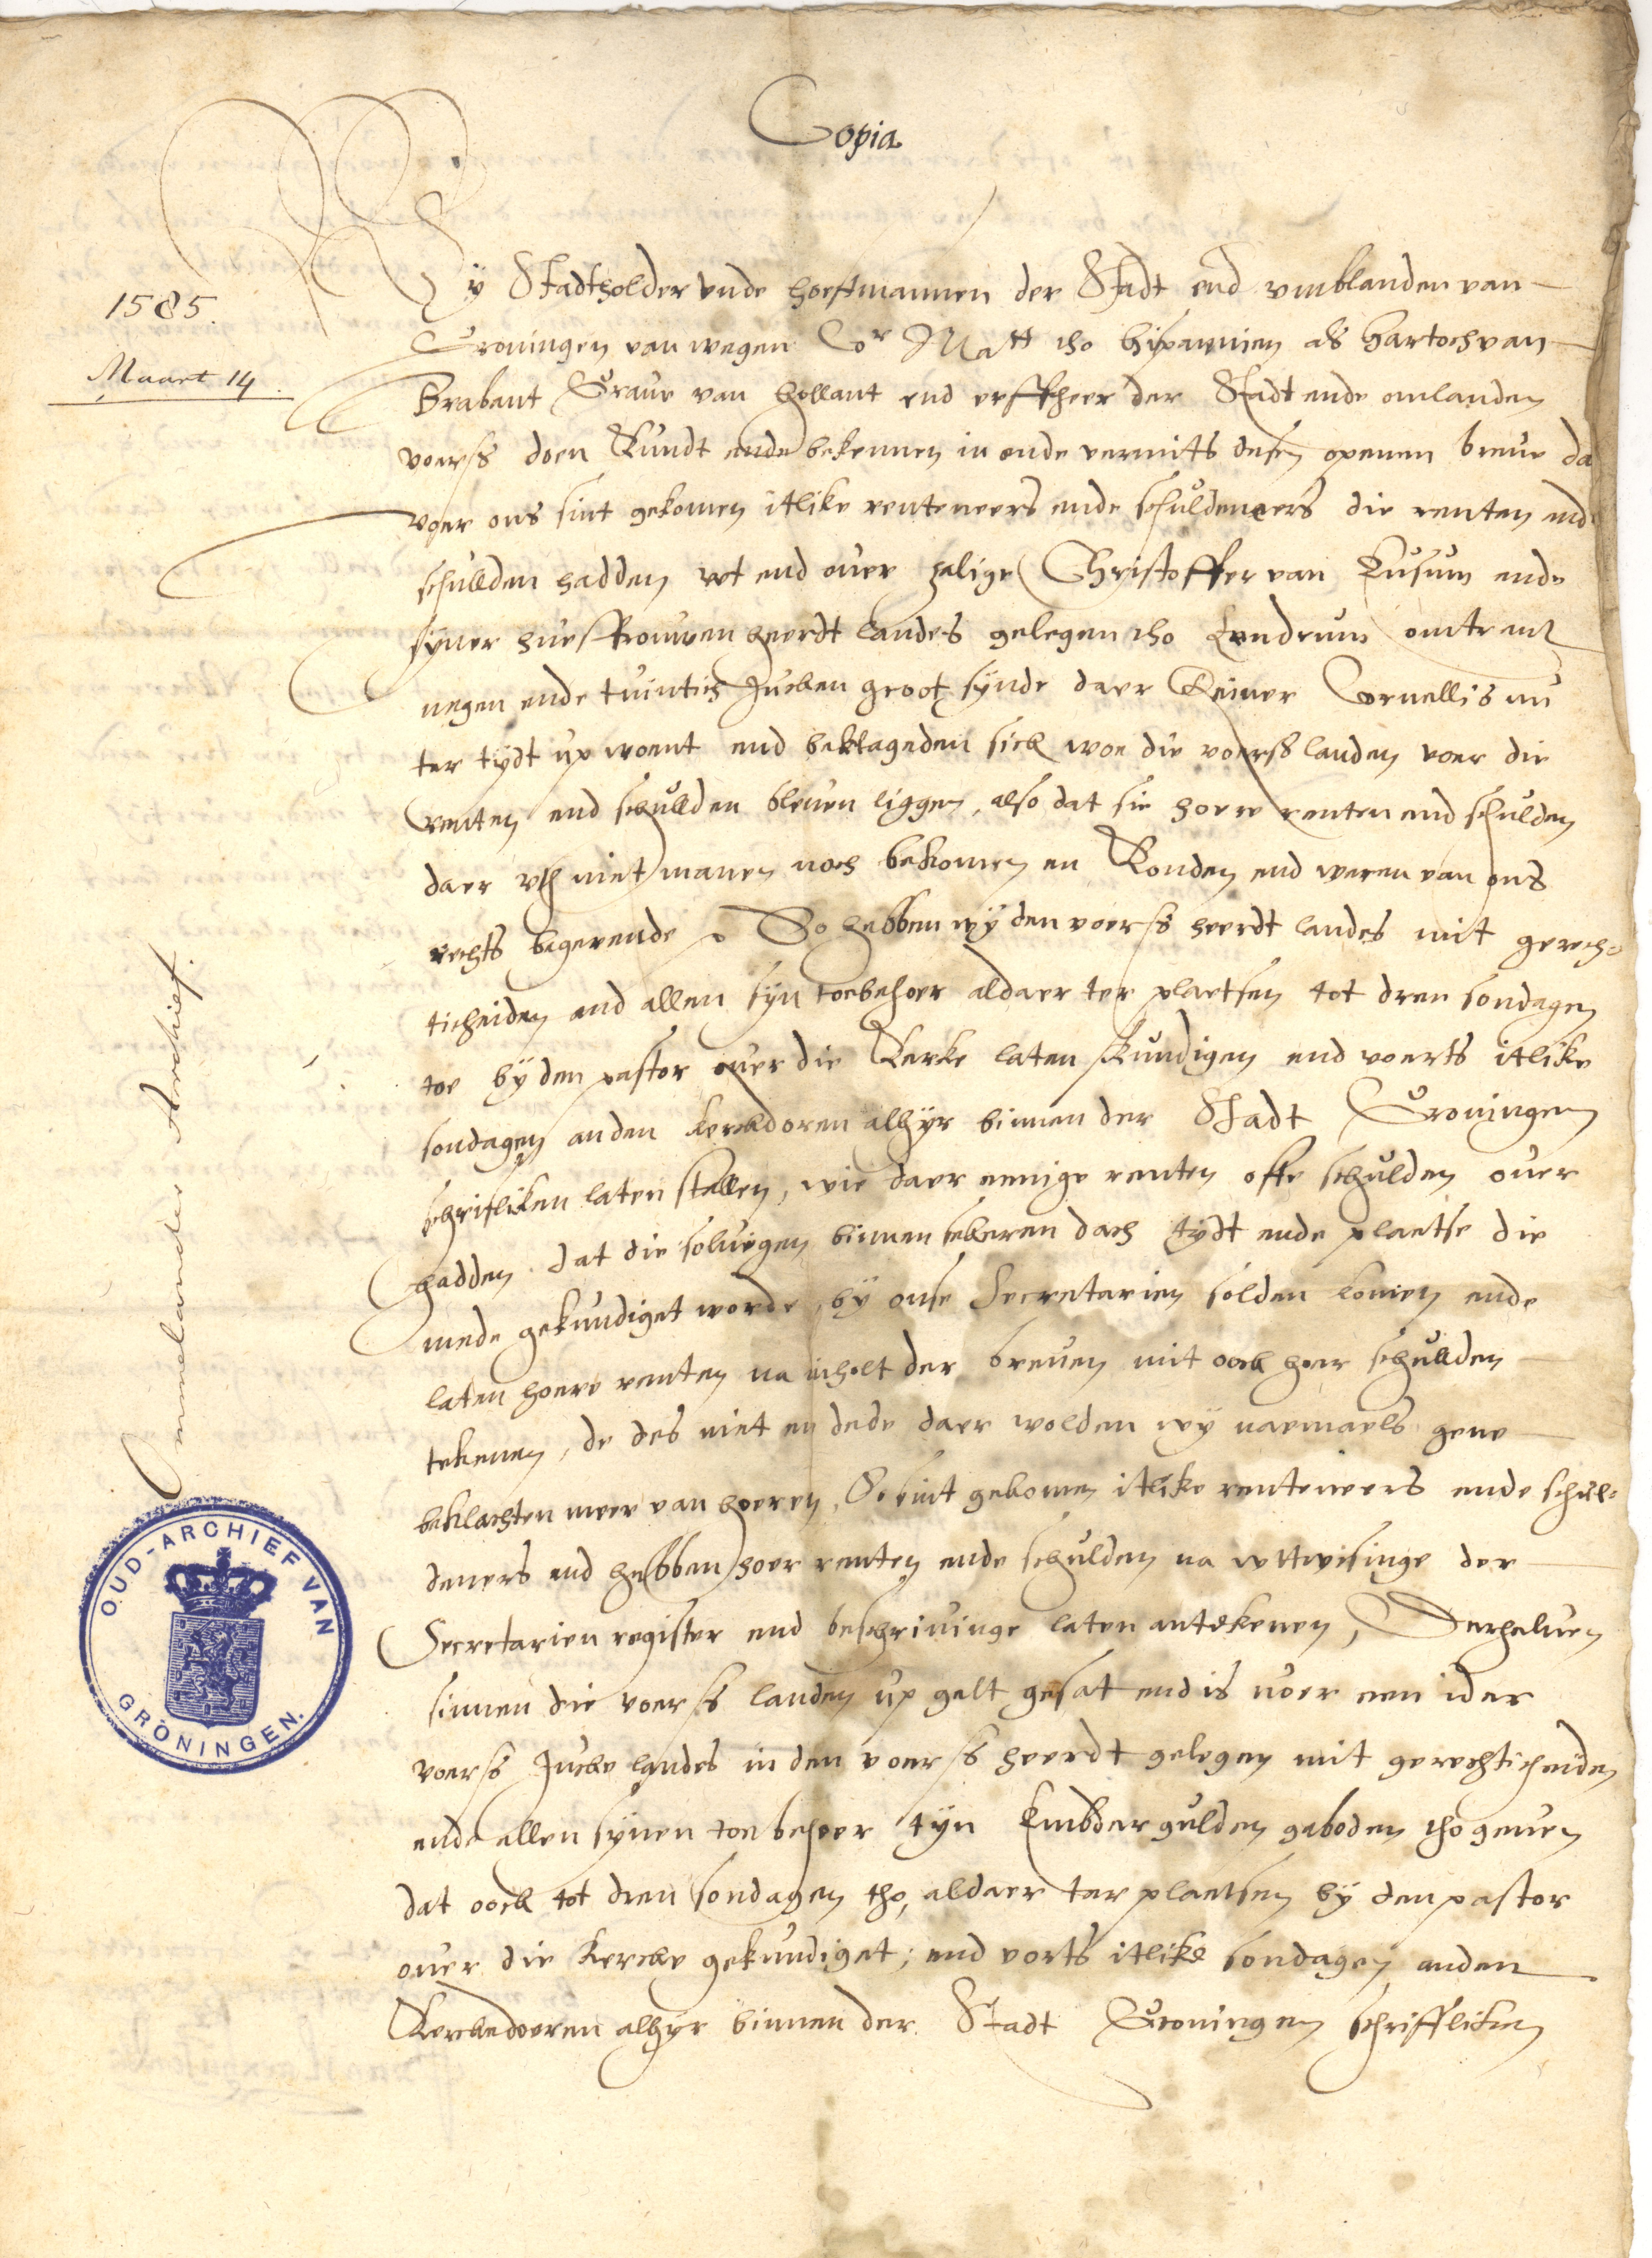 Copia
1585.
Maart 14.
Wy Stadtholder unde hoefftmannen der Stadt end vmblanden van
Groningen van wegen Cor Matt tho hispannien als hartoch van
Brabant Graue van hollant end erffheer der Stadt ende omlanden
voerss doen Kundt ende bekennen in ende vermits desen openen breue da
voer ons sint gekomen itlike renteneers ende schuldeneers die renten end
schullden hadden wt end ouer zalige Christoffer van Eusum ende
syner huesfrouwen heerdt landes gelegen tho omtrent
negen ende tuintich Jucken groot synde daer Reiner Cornellis nu
ter tydt up woent end beklageden sick woe die voerss landen voer die
renten end schullden bleuen liggen, also dat sie hoere renten end schulden
daer vth niet manen noch bekomen en Konden end weren van ons
rechts begerende So hebben wy den voerss heerdt landes mit gerech=
ticheiden end allen syn toebehoer aldaer ter plaetsen tot dren sondagen
toe by den pastor ouer die Kerke laten Kundigen end voerts itlike
sondagen an den Kerckdoren alhyr binnen der Stadt Groningen
schriftliken laten stellen, wie daer eenige renten offte schulden ouer
hadden dat die soluigen binnen sekeren dach tydt ende plaetse die
mede gekundiget worde, by onse Secretarien solden komen ende
laten hoere renten na inholt der breuen mit oock hoer schullden
tekenen, de des niet en dede daer wolden wy naemaels gene
beklachten meer van hoeren, So sint gekomen itlike renteneers ende schul=
deners end hebben hoer renten ende schulden na wttwisinge der
Secretarien register end beschriuinge laten antekenen, Derhaluen
sinnen die voerss landen up gelt gesat end is voer een ider
voerss Jucke landes in den voerss heerdt gelegen mit gerechticheiden
ende allen synen toebehoer tyn Embder gulden geboden tho geuen
dat oock tot dren sondagen tho, aldaer ter plaetsen by den pastor
ouer die Kercke gekundiget; end vorts itlike sondagen an den
Kerckedoeren alhyr binnen der Stadt Groningen schrifftliken
Ommelander Archief.
OUD-ARCHIEF VAN
GRONINGEN.